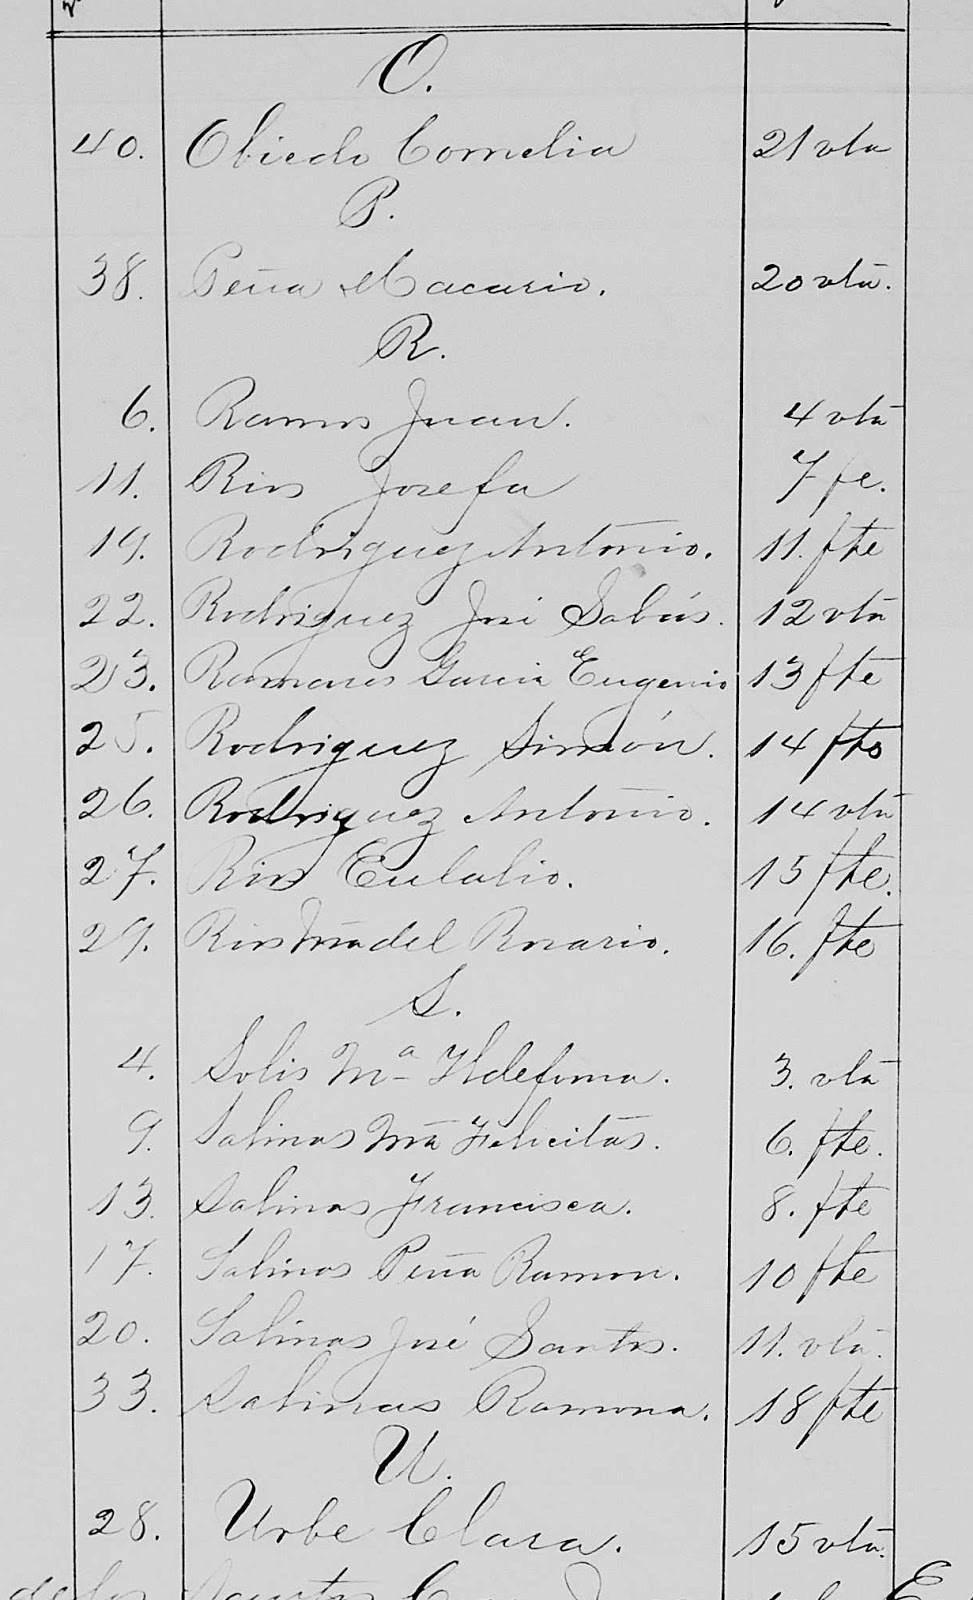 O.
40. Obiedo Cornelia 21 vta
P.
38. Peña Macario. 20 vta.
R.
6. Ramos Juan. 4 vta
11. Rios Josefa 7 fe.
19. Rodriguez Antonio. 11. fte
22. Rodriguez José Sabás. 12 vta
23. Ramones Garcia Eugenio 13 fte
25. Rodriguez Simón. 14 fte
26. Rodriguez Antonio. 14 vta
27. Rios Eulalio. 15 fte.
29. Rios Ma del Rosario. 16. fte
S.
4. Solis Ma Ildefonsa. 3. vta
9. Salinas Ma Felicitas. 6. fte.
13. Salinas Francisca. 8. fte
17. Salinas Peña Ramon. 10 fte
20. Salinas José Santos. 11. vta.
33. Salinas Ramona. 18 fte
U.
28. Urbe Clara. 15 vta.
de los